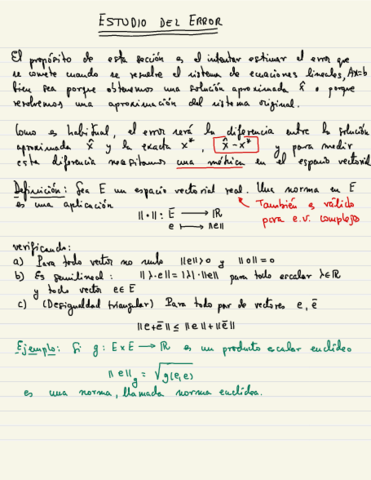 ESTUDIO DEL ERROR
El propósito de esta sección es el intentar estimar el error que
se comete cuando se resuelve el sistema de ecuaciones lineales, Ax=b
bien sea porque obtenemos una solución aproximada x̂ o porque
resolvemos una aproximación del sistema original.
Como es habitual, el error será la diferencia entre la solución
aproximada x̂ y la exacta x*, x̂ - x* y para medir
esta diferencia necesitamos una métrica en el espacio vectorial
Definición: Sea E un espacio vectorial real. Una norma en E
es una aplicación
También es válido
para e.v. complejo
‖·‖: E ⟶ ℝ
e ⟼ ‖e‖
verificando:
a) Para todo vector no nulo ‖e‖>0 y ‖0‖=0
b) Es semilineal: ‖λ·e‖=|λ|·‖e‖ para todo escalar λ∈ℝ
y todo vector e∈E
c) (Desigualdad triangular) Para todo par de vectores e, ē
‖e+ē‖ ≤ ‖e‖+‖ē‖
Ejemplo: Si g: E×E ⟶ ℝ es un producto escalar euclídeo
‖e‖_g = √g(e,e)
es una norma, llamada norma euclídea.